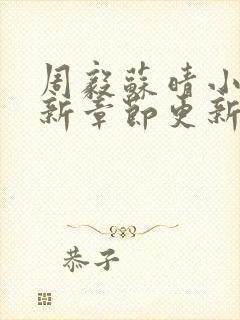 周毅蘇晴小
新章節更新
恭子